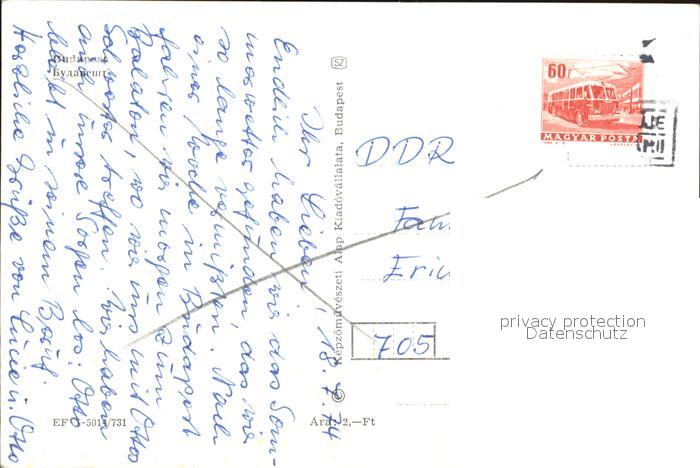 Budapest
Будапешт
Ihr Lieben, 18.7.74
Endlich haben wir das Som-
merwetter gefunden, das wir
so lange vermißten. Nach
einer Woche in Budapest
fahren wir morgen zum
Balaton, wo wir uns mit Ottos
treffen. Wir haben
auch unsere Sorgen los: Otto
bleibt in seinem Beruf.
Herzliche Grüße von Lucie u. Otto
EF -5014/731
SZ
© Képzőművészeti Alap Kiadóvállalata, Budapest
Ára: 2,—Ft
60f
MAGYAR POSTA
DDR
Fam.
Eric
705
privacy protection
Datenschutz